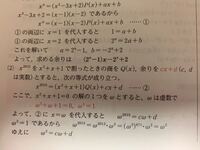 xⁿ=(x²−3x+2)P(x)+ax+b
x²−3x+2=(x−1)(x−2) であるから
xⁿ=(x−1)(x−2)P(x)+ax+b ……①
①の両辺に x=1 を代入すると 1=a+b
①の両辺に x=2 を代入すると 2ⁿ=2a+b
これを解いて a=2ⁿ−1, b=−2ⁿ+2
よって, 求める余りは (2ⁿ−1)x−2ⁿ+2
を x²+x+1 で割ったときの商を Q(x), 余りを cx+d (c, d
は実数) とすると, 次の等式が成り立つ。
=(x²+x+1)Q(x)+cx+d ……②
ここで, x²+x+1=0 の解の1つを ω とすると, ω は虚数で
ω²+ω+1=0, ω³=1
よって, ②に x=ω を代入すると =cω+d
ω³=1 であるから
ゆえに ω²=cω+d